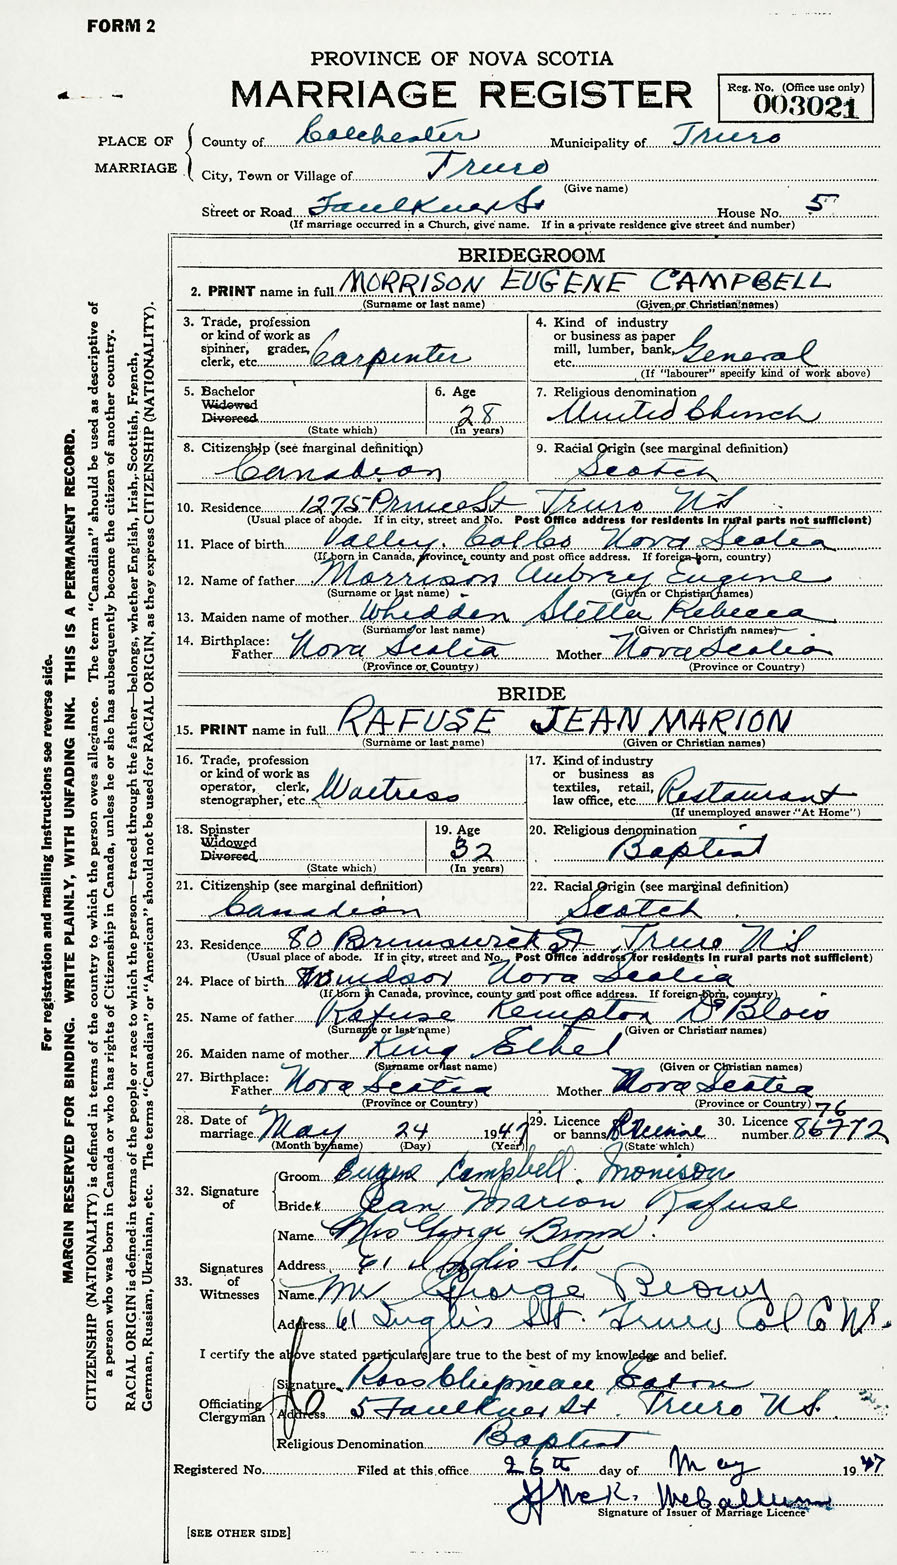 FORM 2
PROVINCE OF NOVA SCOTIA
MARRIAGE REGISTER
Reg. No. (Office use only)
003021
PLACE OF MARRIAGE
County of Colchester Municipality of Truro
City, Town or Village of Truro
(Give name)
Street or Road Faulkner St House No. 5
(If marriage occurred in a Church, give name. If in a private residence give street and number)
BRIDEGROOM
2. PRINT name in full MORRISON EUGENE CAMPBELL
(Surname or last name) (Given or Christian names)
3. Trade, profession or kind of work as spinner, grader, clerk, etc. Carpenter
4. Kind of industry or business as paper mill, lumber, bank, etc. General
(If "labourer" specify kind of work above)
5. Bachelor Widowed Divorced (State which)
6. Age 28 (In years)
7. Religious denomination United Church
8. Citizenship (see marginal definition) Canadian
9. Racial Origin (see marginal definition) Scotch
10. Residence 1275 Prince St Truro N S
(Usual place of abode. If in city, street and No. Post Office address for residents in rural parts not sufficient)
11. Place of birth Valley. Col Co Nova Scotia
(If born in Canada, province, county and post office address. If foreign-born, country)
12. Name of father Morrison Aubrey Eugene
(Surname or last name) (Given or Christian names)
13. Maiden name of mother Whidden Stella Rebecca
(Surname or last name) (Given or Christian names)
14. Birthplace: Father Nova Scotia Mother Nova Scotia
(Province or Country) (Province or Country)
BRIDE
15. PRINT name in full RAFUSE JEAN MARION
(Surname or last name) (Given or Christian names)
16. Trade, profession or kind of work as operator, clerk, stenographer, etc. Waitress
17. Kind of industry or business as textiles, retail, law office, etc. Restaurant
(If unemployed answer "At Home")
18. Spinster Widowed Divorced (State which)
19. Age 32 (In years)
20. Religious denomination Baptist
21. Citizenship (see marginal definition) Canadian
22. Racial Origin (see marginal definition) Scotch
23. Residence 80 Brunswick St Truro N S
(Usual place of abode. If in city, street and No. Post Office address for residents in rural parts not sufficient)
24. Place of birth Windsor Nova Scotia
(If born in Canada, province, county and post office address. If foreign-born, country)
25. Name of father Rafuse Kempton DeBlois
(Surname or last name) (Given or Christian names)
26. Maiden name of mother King Ethel
(Surname or last name) (Given or Christian names)
27. Birthplace: Father Nova Scotia Mother Nova Scotia
(Province or Country) (Province or Country)
28. Date of marriage May 24 1947
(Month by name) (Day) (Year)
29. Licence or banns License (State which)
30. Licence number 86772 76
32. Signature of
Groom Eugene Campbell Morrison
Bride Jean Marion Rafuse
33. Signatures of Witnesses
Name Mrs George Brown
Address 61 Inglis St.
Name Mr George Brown
Address 61 Inglis St. Truro Col Co N.S.
I certify the above stated particulars are true to the best of my knowledge and belief.
Officiating Clergyman
Signature Ross Chipman Eaton
Address 5 Faulkner St. Truro N.S.
Religious Denomination Baptist
Registered No. Filed at this office 26th day of May 1947
Signature of Issuer of Marriage Licence
[SEE OTHER SIDE]
For registration and mailing instructions see reverse side.
MARGIN RESERVED FOR BINDING. WRITE PLAINLY, WITH UNFADING INK. THIS IS A PERMANENT RECORD.
CITIZENSHIP (NATIONALITY) is defined in terms of the country to which the person owes allegiance. The term "Canadian" should be used as descriptive of
a person who was born in Canada or who has rights of Citizenship in Canada, unless he or she has subsequently become the citizen of another country.
RACIAL ORIGIN is defined in terms of the people or race to which the person—traced through the father—belongs, whether English, Irish, Scottish, French,
German, Russian, Ukrainian, etc. The terms "Canadian" or "American" should not be used for RACIAL ORIGIN, as they express CITIZENSHIP (NATIONALITY).